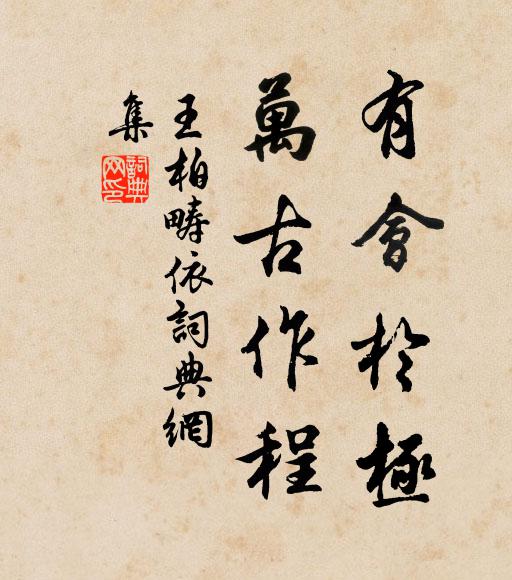 有會於極
萬古作程
王柏疇依詞典網
集
詞典網印